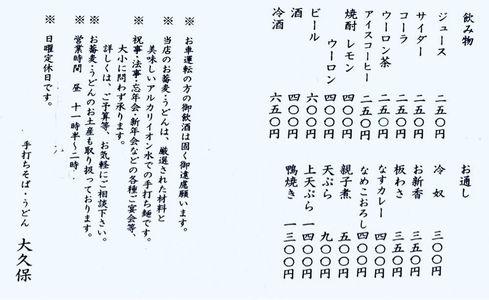 飲み物
ジュース 二五〇円
サイダー 二五〇円
コーラ 二五〇円
ウーロン茶 二五〇円
アイスコーヒー 二五〇円
焼酎 レモン 四〇〇円
ウーロン 四〇〇円
ビール 六〇〇円
酒 四〇〇円
冷酒 六五〇円
お通し
冷奴 三〇〇円
お新香 三五〇円
板わさ 三五〇円
なすカレー 四〇〇円
なめこおろし 四〇〇円
親子煮 五〇〇円
天ぷら 九〇〇円
上天ぷら 一四〇〇円
鴨焼き 一三〇〇円
※ お車運転の方の御飲酒は固く御遠慮願います。
※ 当店のお蕎麦・うどんは、厳選された材料と
美味しいアルカリイオン水での手打ち麺です。
※ 祝事・法事・忘年会・新年会などの各種ご宴会等、
大小に問わず承ります。
詳しくは、ご予算等、お気軽にご相談下さい。
※ お蕎麦・うどんのお土産も取り扱っております。
※ 営業時間 昼 十一時半〜二時
※ 日曜定休日です。
手打ちそば・うどん 大久保